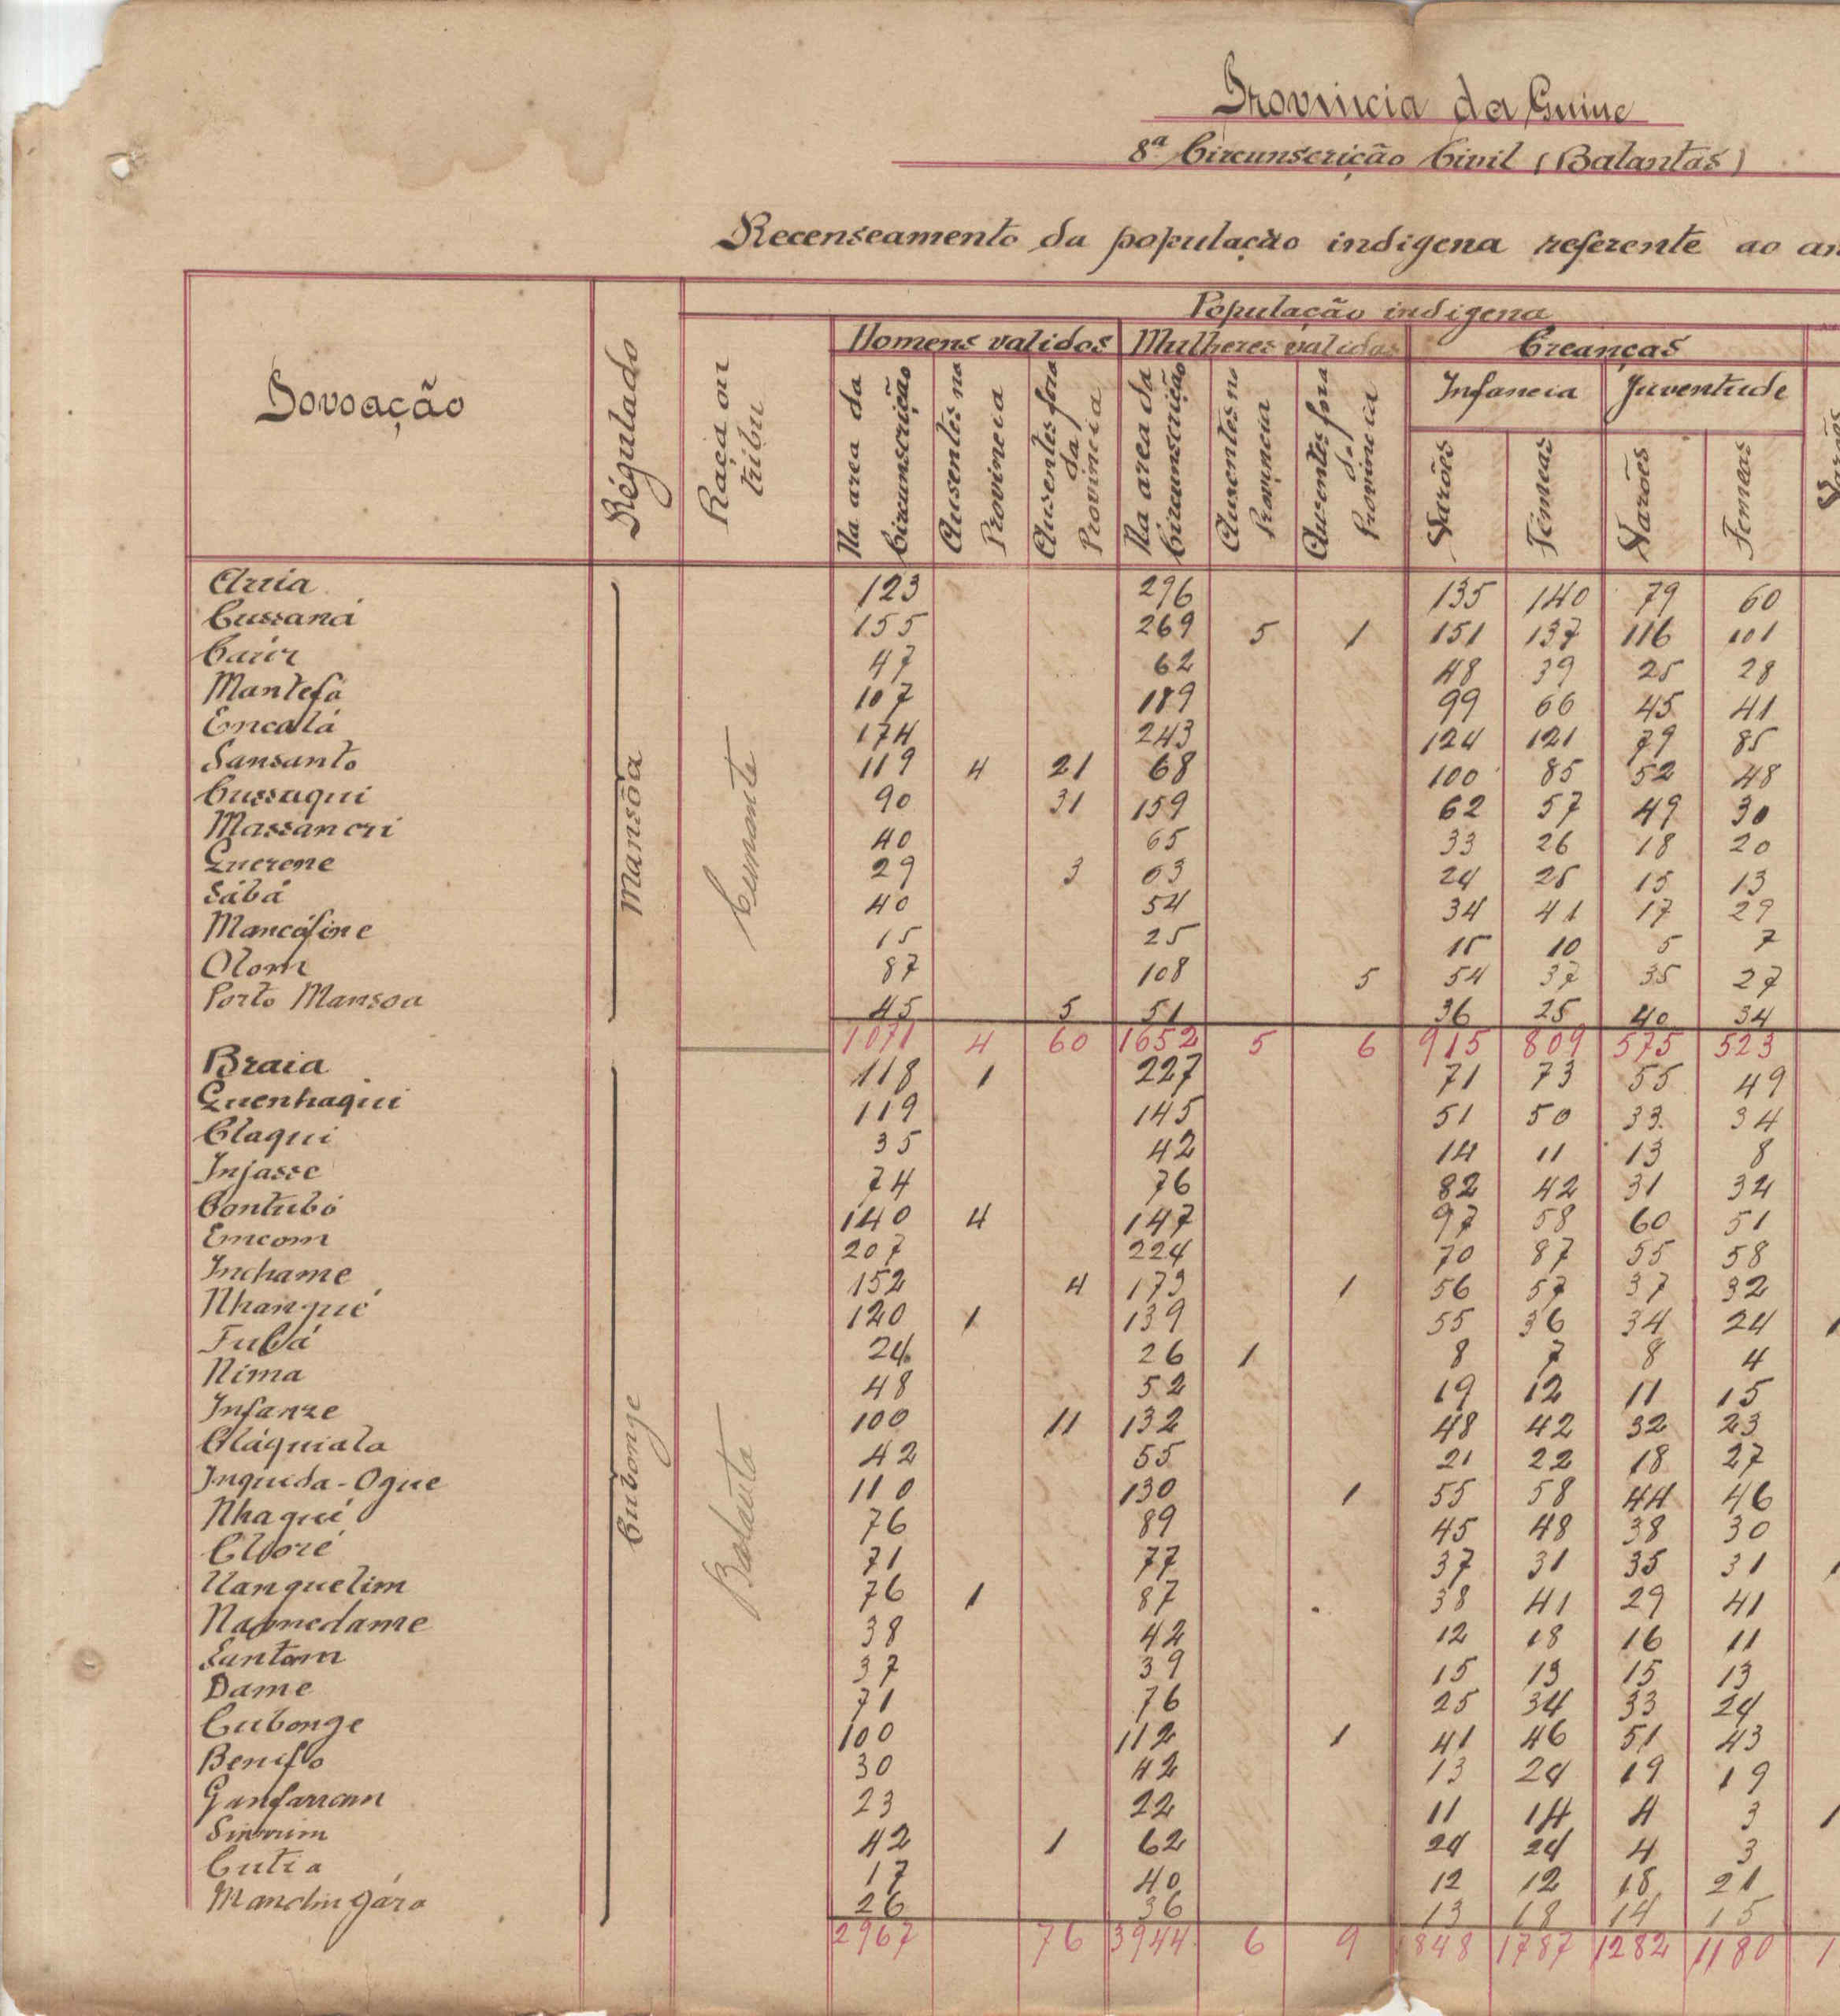 Provincia da Guine
8ª Circunscrição Civil (Balantas)
Recenseamento da população indigena referente ao an
Povoação
Régulado
Raça ou tribu
População indigena
Homens validos
Mulheres validas
Creanças
Na area da Circunscrição
Ausentes na Provincia
Ausentes fora da Provincia
Na area da Circunscrição
Ausentes na Provincia
Ausentes fora da Provincia
Infancia
Juventude
Varões
Femeas
Varões
Femeas
Varões
Mansôa
Cubonge
Balanta
123 296 135 140 79 60
Cussaná 155 269 5 1 151 137 116 101
47 62 48 39 25 28
Mantefá 107 189 99 66 45 41
Encalá 174 243 124 121 79 85
Sansanto 119 4 21 68 100 85 52 48
Cussaqui 90 31 159 62 57 49 30
Massancri 40 65 33 26 18 20
Querene 29 3 63 24 25 15 13
Sábá 40 54 34 41 17 29
Mancáfine 15 25 15 10 5 7
Olom 87 108 5 54 37 35 27
Porto Mansoa 45 5 51 36 25 40 34
1071 4 60 1652 5 6 915 809 575 523
Braia 118 1 227 71 73 55 49
Quenhaqui 119 145 51 50 33 34
Claqui 35 42 14 11 13 8
Injasse 74 76 82 42 31 32
Contubó 140 4 147 97 58 60 51
Emcom 207 224 70 87 55 58
Inchame 152 4 173 1 56 57 37 32
Nhanqué 120 1 139 55 36 34 24 1
24 26 1 8 7 8 4
Nima 48 52 19 12 11 15
Infanze 100 11 132 48 42 32 23
Cláquiala 42 55 21 22 18 27
Inquida-Ogue 110 130 1 55 58 44 46
Nhaqué 76 89 45 48 38 30
71 77 37 31 35 31 1
Uanquelim 76 1 87 38 41 29 41
38 42 12 18 16 11
Santom 37 39 15 13 15 13
Dame 71 76 25 34 33 24
Cubonge 100 112 1 41 46 51 43
Benifo 30 42 13 24 19 19
Ganfarram 23 22 11 14 4 3 1
42 1 62 24 24 4 3
Cutia 17 40 12 12 18 21
Mandingára 26 36 13 18 14 15
2967 76 3944 6 9 1848 1787 1282 1180 1